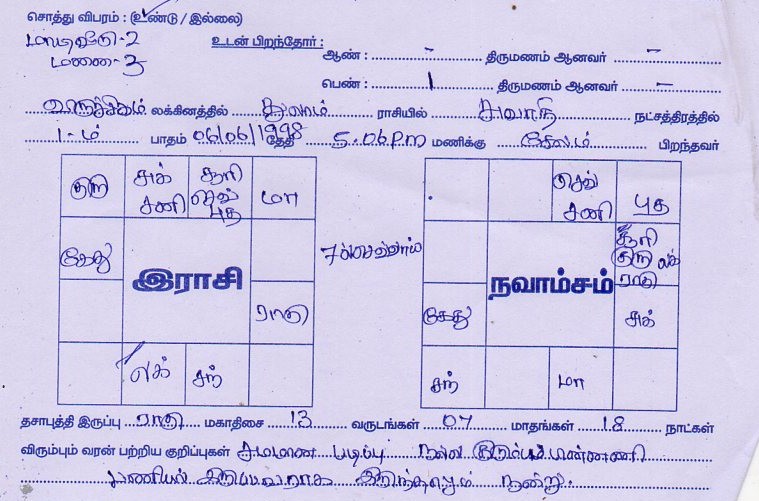 சொத்து விபரம் : (உண்டு / இல்லை)
மாடிவீடு-2 உடன் பிறந்தோர் :
மனை-3 ஆண் : - திருமணம் ஆனவர் -
பெண் : 1 திருமணம் ஆனவர் -
லக்கினத்தில் துலாம் ராசியில் சுவாதி நட்சத்திரத்தில்
1-ம் பாதம் 06/06/1998 தேதி 5.06 P.M மணிக்கு சேலம் பிறந்தவர்
குரு சுக் சனி சூரி செவ் புத மா
கேது
இராசி
ராகு
லக் சந்
செவ் சனி புத
சூரி குரு லக் ராகு
நவாம்சம்
கேது சுக்
சந் மா
தசாபுத்தி இருப்பு ராகு மகாதிசை 13 வருடங்கள் 07 மாதங்கள் 18 நாட்கள்
விரும்பும் வரன் பற்றிய குறிப்புகள் சமமான படிப்பு நல்ல குடும்ப
பணியில் இருப்பவராக இருந்தாலும் நன்று.